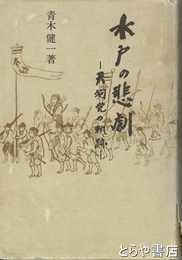 水戸の悲劇
―天狗党の軌跡―
青木健一著
とらや書店